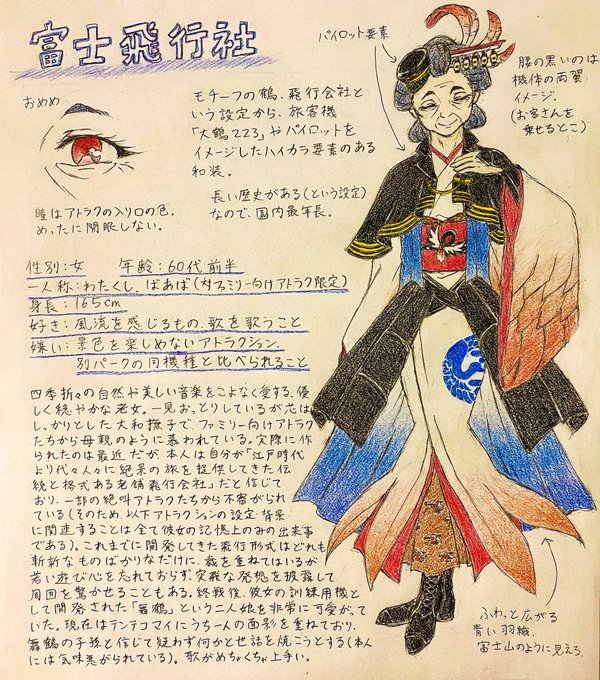 富士飛行社
パイロット要素
腰の黒いのは
機体の両翼
イメージ.
(お客さんを
乗せるとこ)
おめめ
モチーフの鶴、飛行会社と
いう設定から、旅客機
「大鶴223」やパイロットを
イメージしたハイカラ要素のある
和装。
長い歴史がある(という設定)
なので、国内最年長。
瞳はアトラクの入り口の色.
めったに開眼しない。
性別:女 年齢:60代前半
一人称:わたくし、ばあば(対ファミリー向けアトラク限定)
身長:165cm
好き:風流を感じるもの、歌を歌うこと
嫌い:景色を楽しめないアトラクション、
別パークの同機種と比べられること
四季折々の自然や美しい音楽をこよなく愛する、優
しく穏やかな老女。一見おっとりしているが芯は
しっかりとした大和撫子で、ファミリー向けアトラク
たちから母親のように慕われている。実際に作
られたのは最近だが、本人は自分が「江戸時代
より代々人々に絶景の旅を提供してきた伝
統と格式ある老舗飛行会社」だと信じて
おり、一部の絶叫アトラクたちから不審がられ
ている(そのため、以下アトラクションの設定・背景
に関連することは全て彼女の記憶上のみの出来事
である)。これまでに開発してきた飛行形式はどれも
斬新なものばかりなだけに、歳を重ねてはいるが
若い遊び心を忘れておらず、突飛な発想を披露して
周囲を驚かせることもある。終戦後、彼女の訓練用機と
して開発された「舞鶴」という二人娘を非常に可愛がっ
ていた。現在はテンテコマイにうち一人の面影を重ねており、
舞鶴の子孫と信じて疑わず何かと世話を焼こうとする(本人
には気味悪がられている)。歌がめちゃくちゃ上手い。
ふわっと広がる
青い羽織.
富士山のように見える.